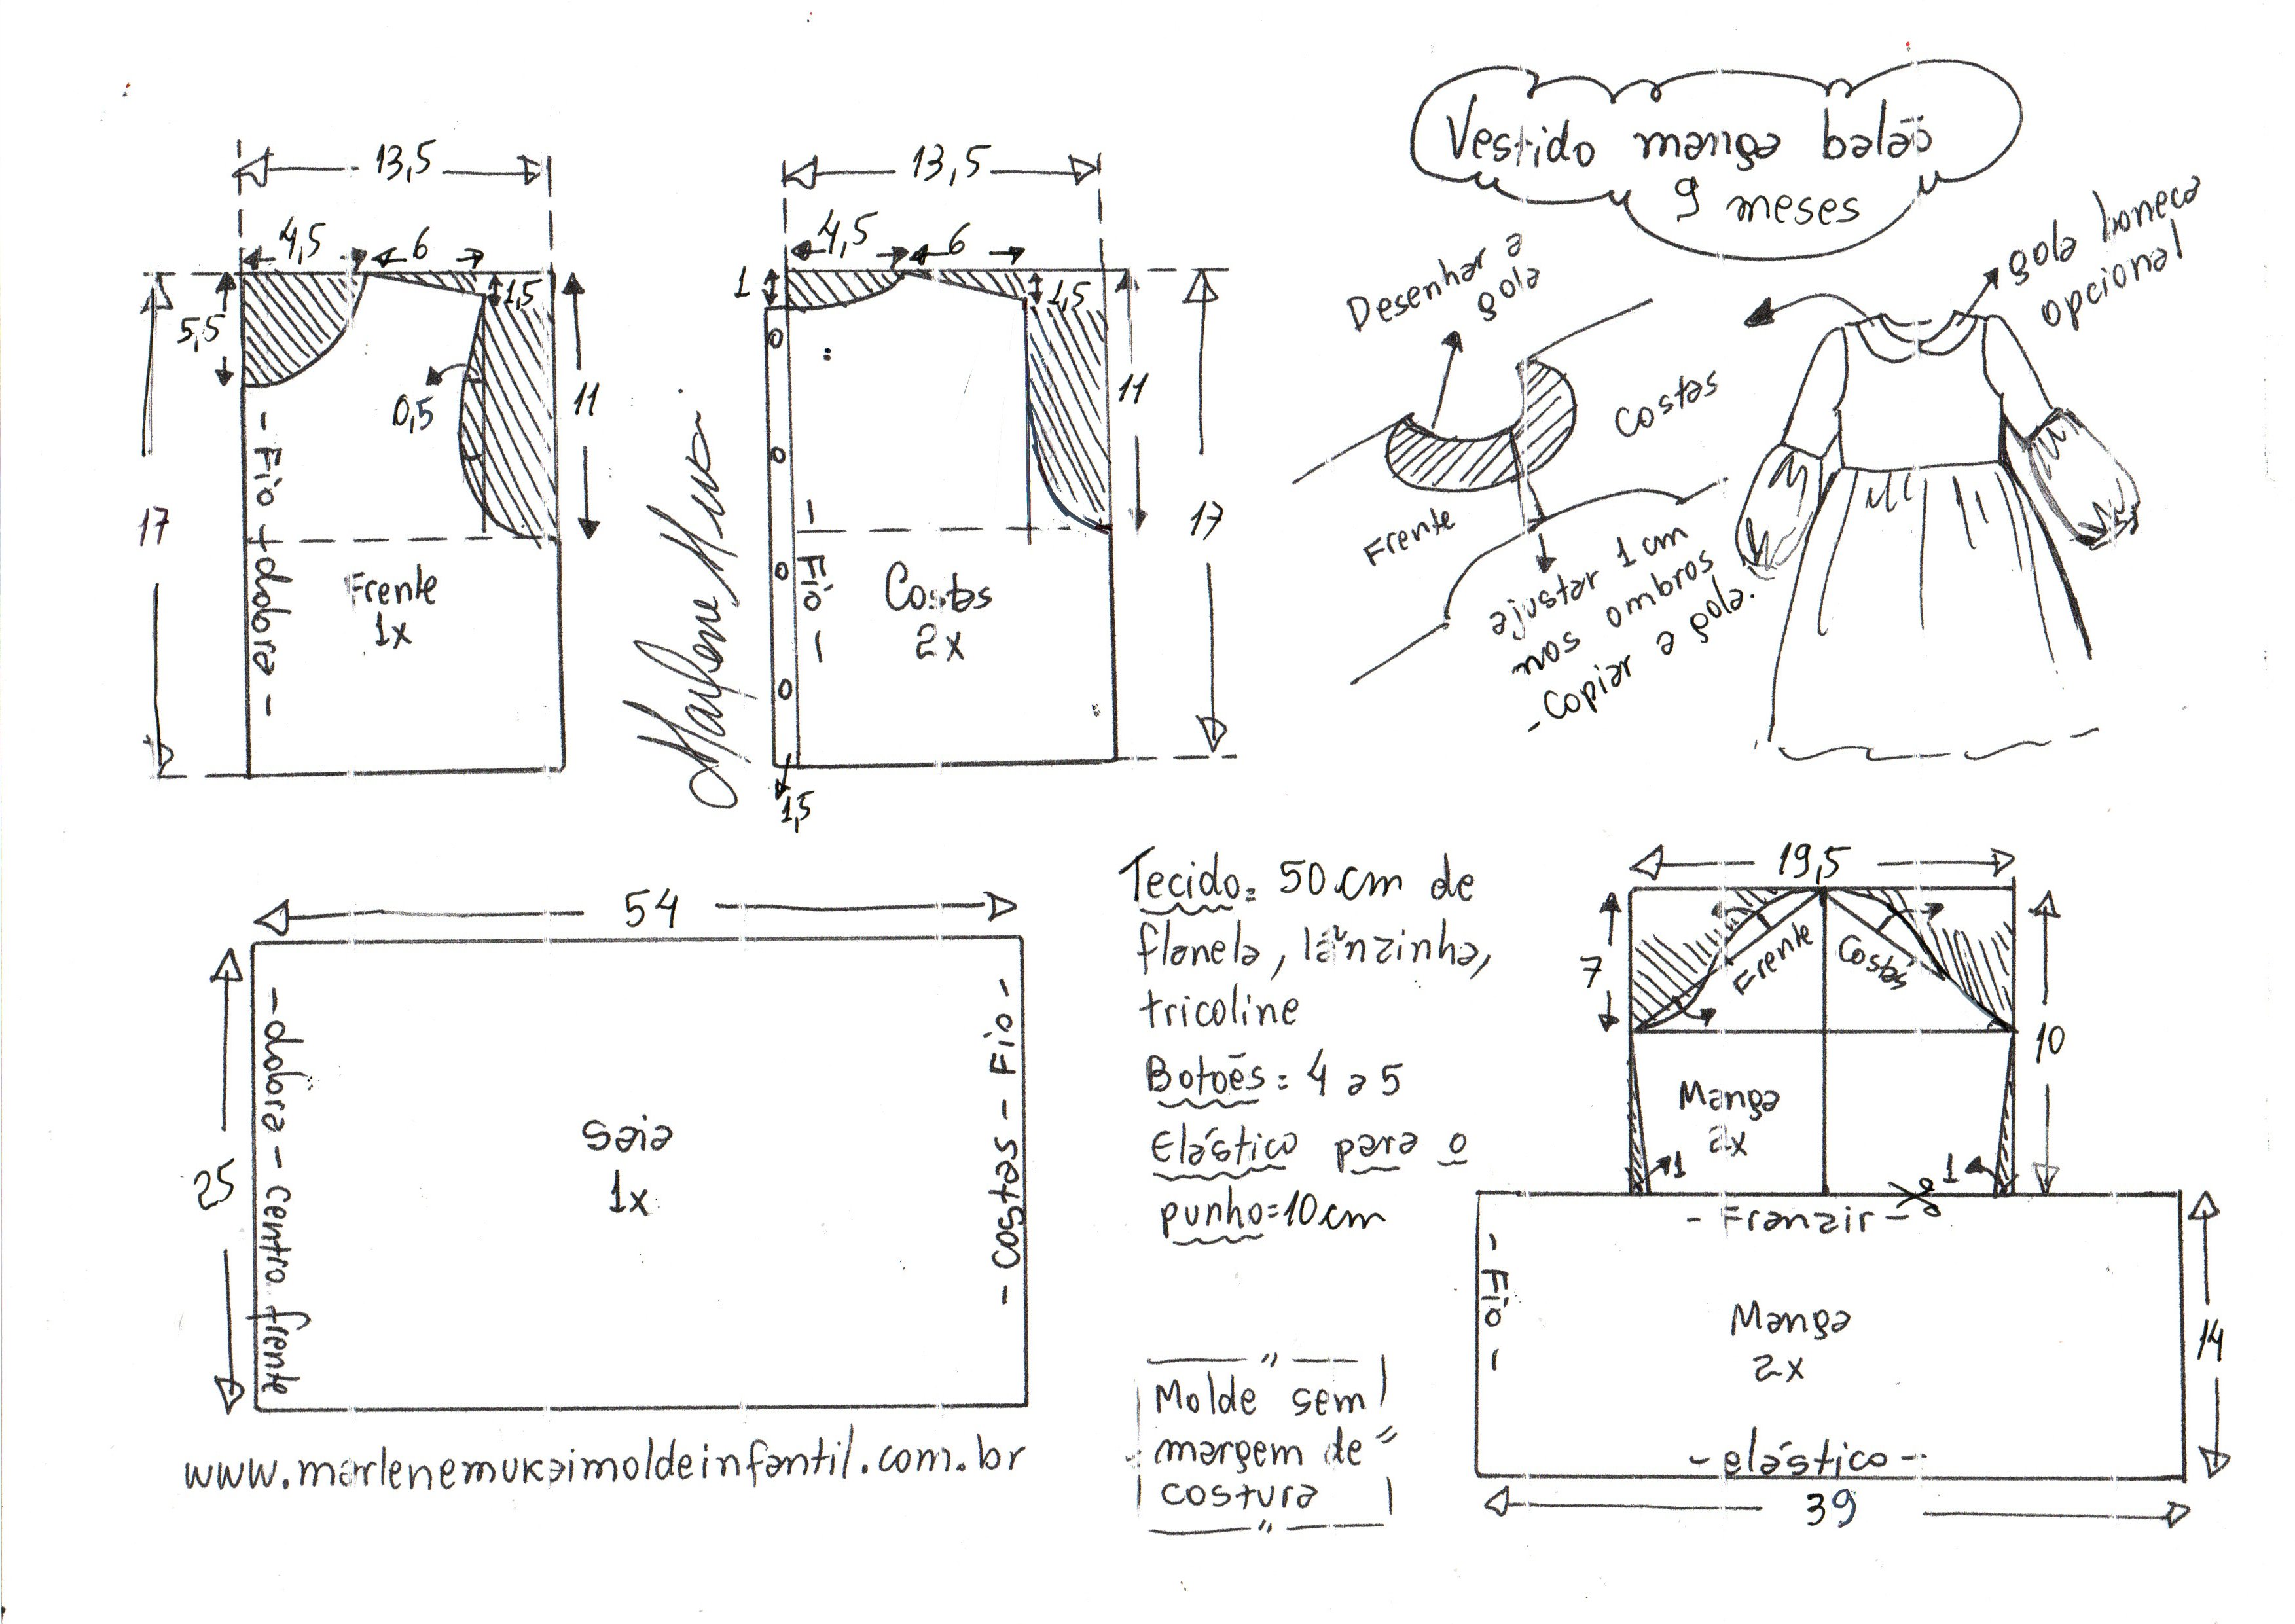 Vestido manga balão
9 meses
13,5
4,5
6
5,5
1,5
0,5
11
17
- Fio + dobra -
Frente
1x
13,5
4,5
6
1
1,5
11
17
- Fio -
Costas
2x
1,5
Desenhar a
gola
gola boneca
opcional
Costas
Frente
ajustar 1 cm
nos ombros
- Copiar a gola.
54
25
- dobra - centro frente
Saia
1x
- costas - Fio -
www.marlenemukaimoldeinfantil.com.br
Tecido= 50 cm de
flanela, lãnzinha,
tricoline
Botões= 4 a 5
Elástico para o
punho=10cm
Molde sem
margem de
costura
19,5
7
Frente
Costas
10
Manga
2x
1
1
- Franzir -
- Fio -
Manga
2x
14
- elástico -
39